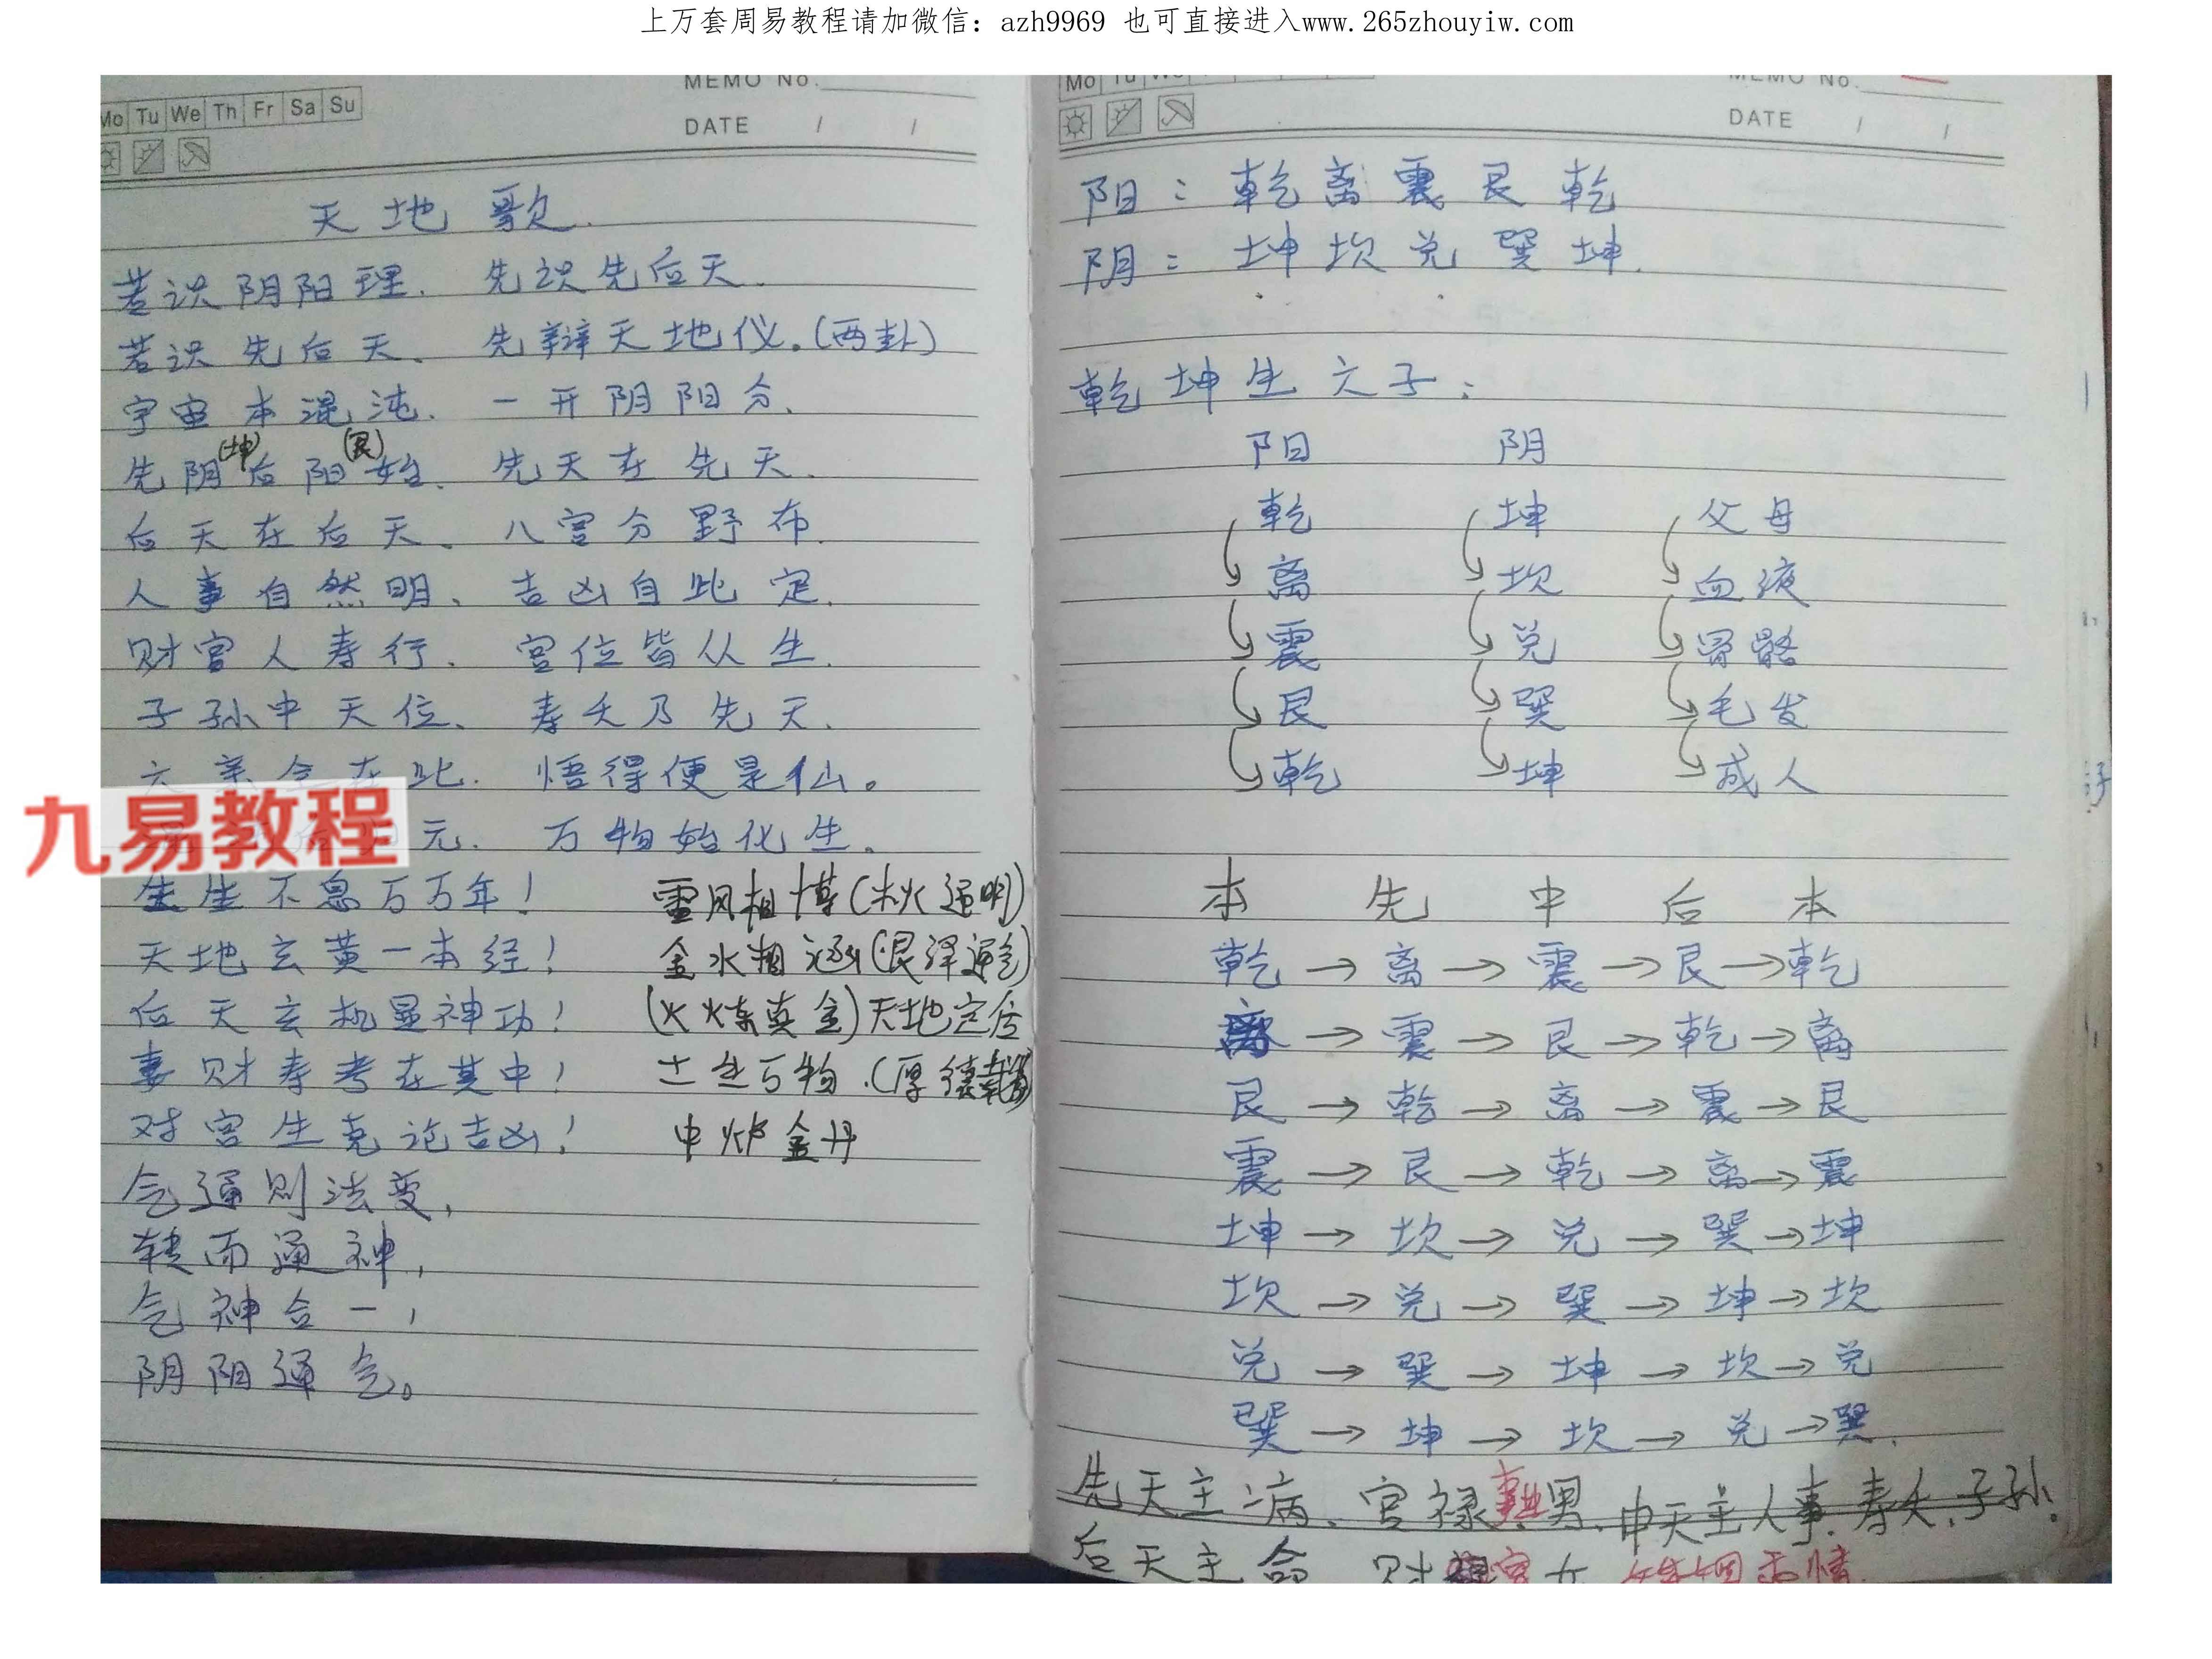 上万套周易教程请加微信：azh9969 也可直接进入www.265zhouyiw.com
MEMO No.
Mo Tu We Th Fr Sa Su
DATE / /
天地歌.
若识阴阳理. 先识先后天.
若识先后天、先辩天地仪。(两卦)
宇宙本混沌. 一开阴阳分、
(坤) (艮)
先阴后阳始. 先天在先天.
后天在后天、八宫分野布.
人事自然明、吉凶自此定.
财官人寿行. 宫位皆从生.
子孙中天位、寿夭乃先天.
六亲全在此. 悟得便是仙。
元. 万物始化生。
九易教程
生生不息万万年！ 雷风相博(木火通明)
天地玄黄一本经！ 金水相涵(艮泽通气)
后天玄机显神功！ (火炼真金)天地定居
妻财寿考在其中！ 土生万物.(厚德载物)
对宫生克论吉凶！ 中炉金丹
气通则法变,
转而通神,
气神合一,
阴阳通气。
MEMO No.
Mo Tu We
DATE / /
阳：乾离震艮乾
阴：坤坎兑巽坤.
乾坤生六子：
阳 阴
乾 坤 父母
离 坎 血液
震 兑 骨骼
艮 巽 毛发
乾 坤 成人
本 先 中 后 本
乾→离→震→艮→乾
离→震→艮→乾→离
艮→乾→离→震→艮
震→艮→乾→离→震
坤→坎→兑→巽→坤
坎→兑→巽→坤→坎
兑→巽→坤→坎→兑
巽→坤→坎→兑→巽.
先天主病、官禄 男. 中天主人事. 寿夭. 子孙.
后天主命 财 女 婚姻 情.